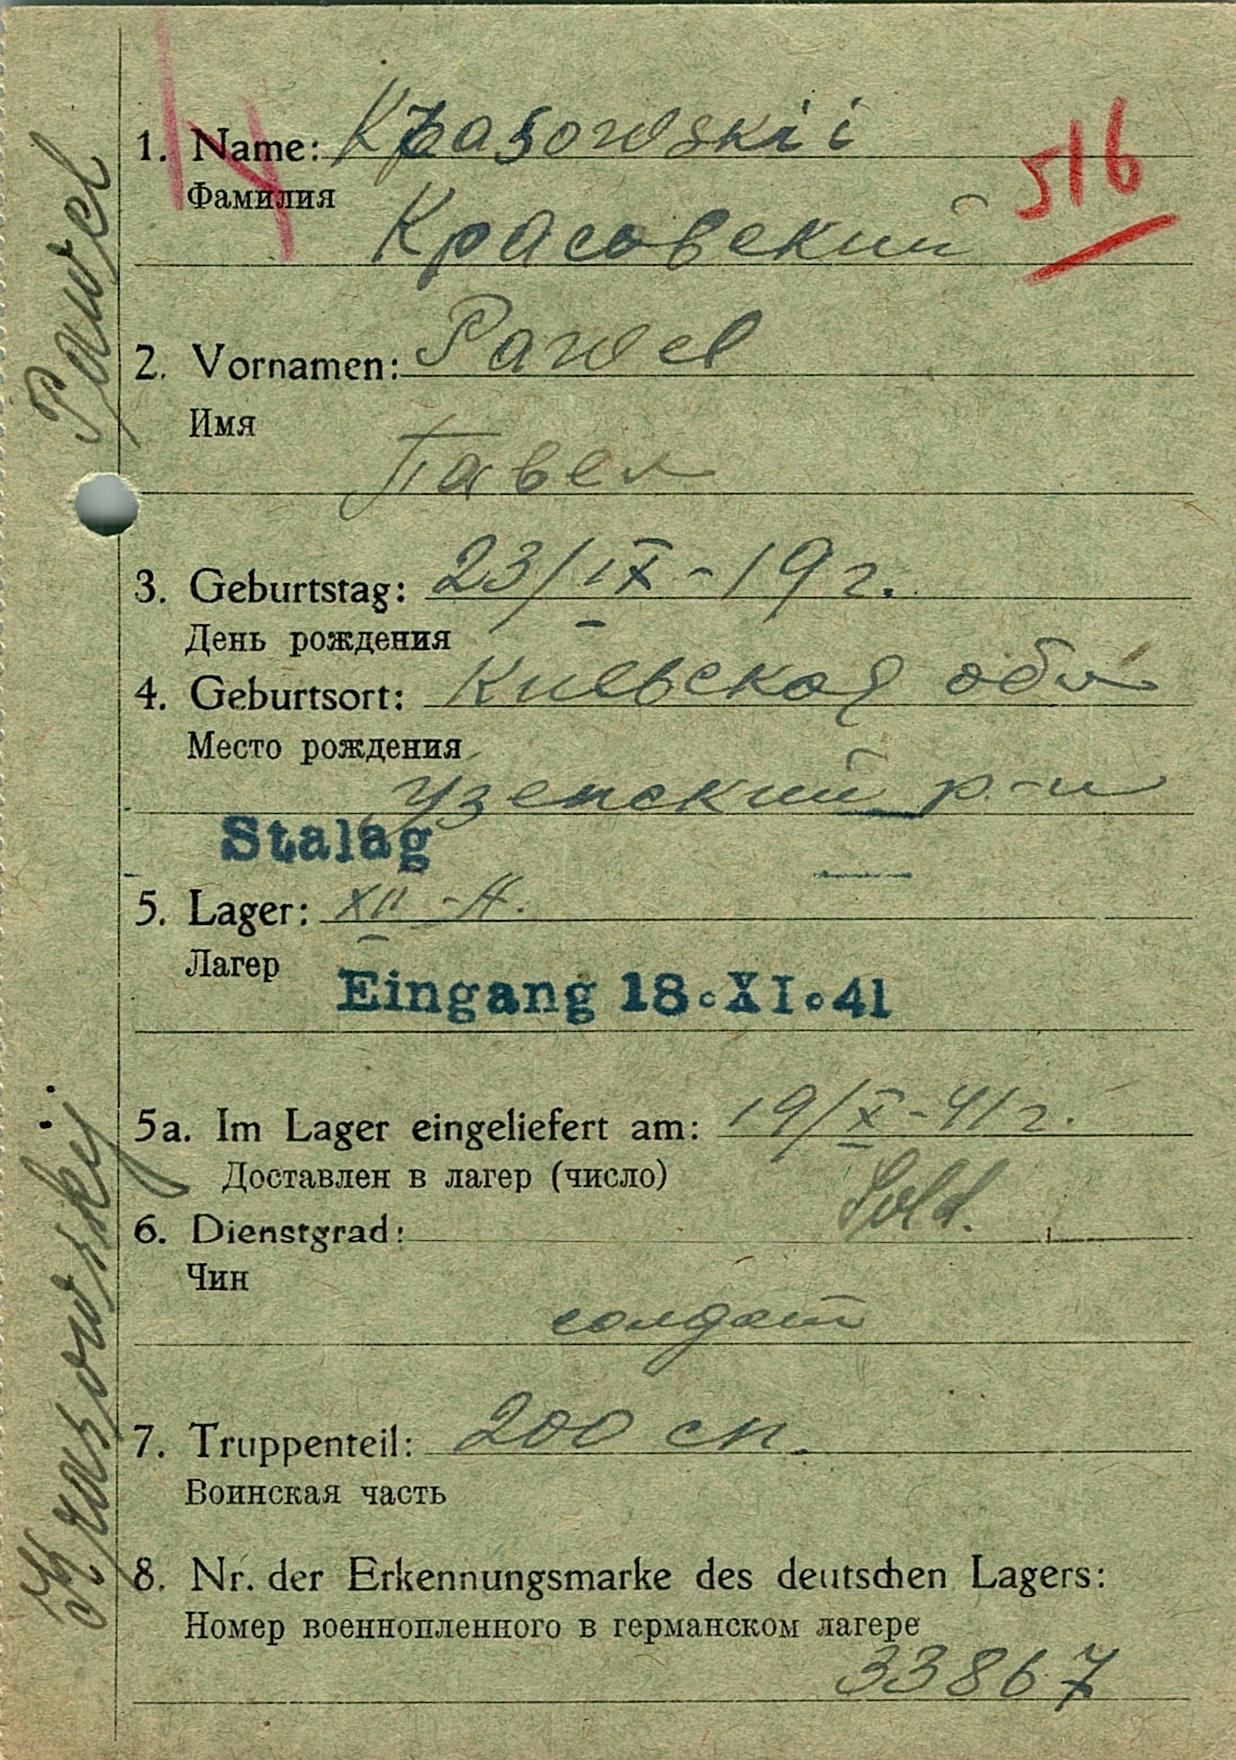 1. Name: Krasowskii
516
Фамилия
Красовский
2. Vornamen: Pawel
Имя
Павел
3. Geburtstag: 23/IX-19 г.
День рождения
4. Geburtsort: Киевская обл
Место рождения
Узенский р-н
Stalag
5. Lager: XII-A.
Лагер
Eingang 18.XI.41
5a. Im Lager eingeliefert am: 19/X-41 г.
Доставлен в лагер (число)
Sold.
6. Dienstgrad:
Чин
солдат
7. Truppenteil: 200 сп.
Воинская часть
8. Nr. der Erkennungsmarke des deutschen Lagers:
Номер военнопленного в германском лагере
33867
Krasowskij Pawel